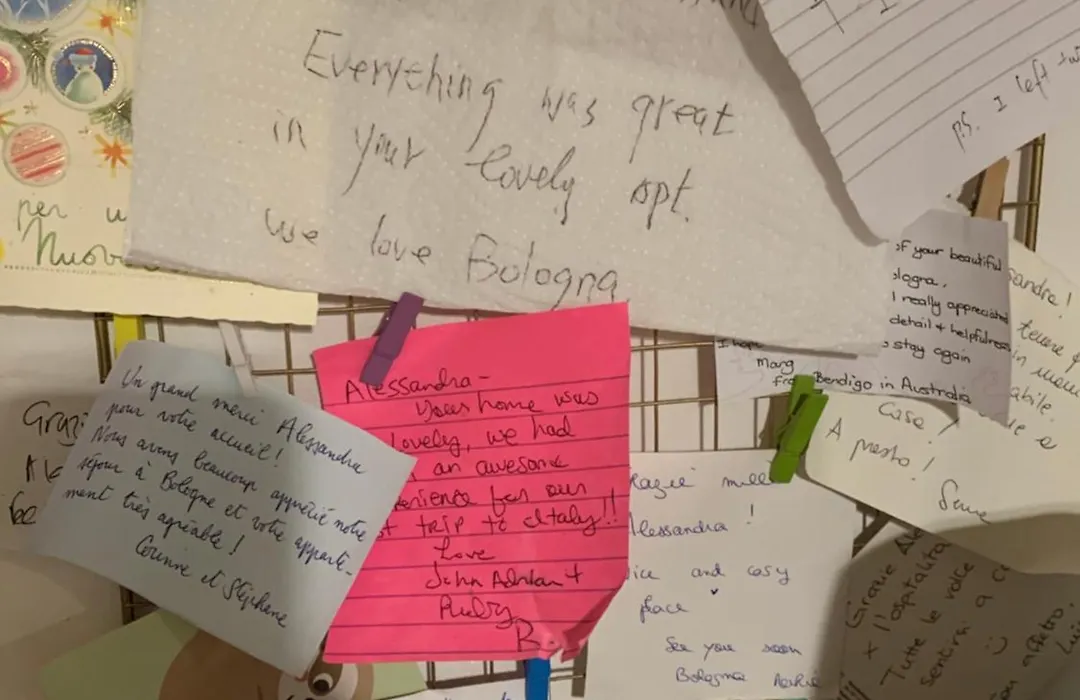 Everything was great
in your lovely apt.
we love Bologna
P.S. I left
per u
Nuov
of your beautiful
ologna.
I really appreciated
detail & helpfulness
stay again
I hope
Marg
Bendigo in Australia
sandra!
Casa!
A presto!
Un grand merci Alessandra
pour votre accueil!
Nous avons beaucoup apprécié notre
séjour à Bologne et votre apparte-
ment très agréable!
Corinne et Stéphane
Alessandra-
Your home was
lovely, we had
an awesome
perience for our
t trip to Italy!!
Love
John Adrian +
Ruby
B.
razie mille
lessandra !
ice and cosy
place
See you soon
Bologna
Grazie Ale
x l'ospitalita
Tutte le volte
sentirsi a c